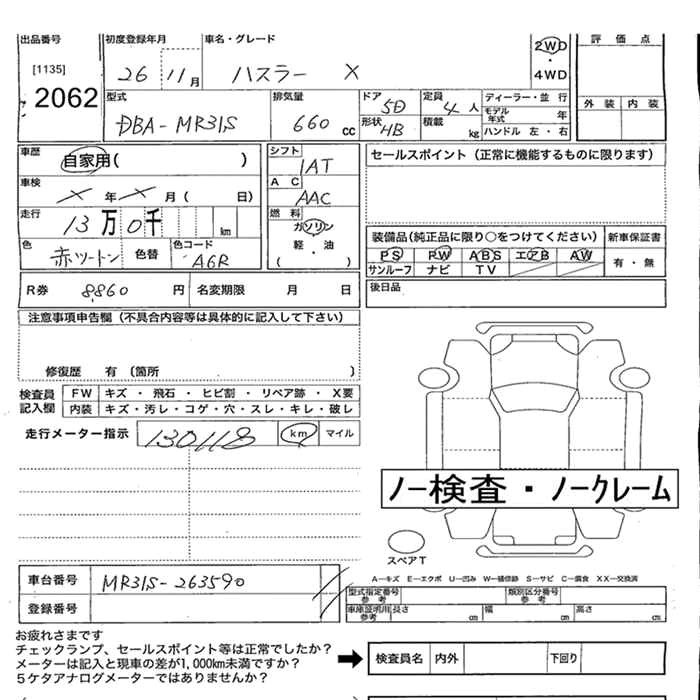 出品番号 初度登録年月 車名・グレード 2WD 評価点
[1135] 26 11月 ハスラー X ・
2062 4WD
型式 排気量 ドア 5D 定員 4人 ディーラー・並行 外装 内装
DBA-MR31S 660cc 形状 HB 積載 kg モデル年式 年
ハンドル 左・右
車歴 自家用( ) シフト セールスポイント(正常に機能するものに限ります)
1AT
車検 X年X月( 日 AC
AAC
走行 13万0千 km 燃料
ガソリン 装備品(純正品に限り○をつけてください) 新車保証書
色 赤ツートン 色替 色コード A6R 軽・油 PS PW ABS エアB AW 有・無
( ・ ) サンルーフ ナビ TV
R券 8,860円 名変期限 月 日 後日品
注意事項申告欄(不具合内容等は具体的に記入して下さい)
修復歴 有(箇所 )
検査員 FW キズ・飛石・ヒビ割・リペア跡・X要
記入欄 内装 キズ・汚レ・コゲ・穴・スレ・キレ・破レ
走行メーター指示 130118 km マイル
ノー検査・ノークレーム
スペアT
A―キズ E―エクボ U―凹み W―補修跡 S―サビ C―腐食 XX―交換済
車台番号 MR31S-263590 型式指定番号参考 類別区分番号参考
登録番号 車庫証明用参考 長さ cm 幅 cm 高さ cm
お疲れさまです
チェックランプ、セールスポイント等は正常でしたか?
メーターは記入と現車の差が1,000km未満ですか? 検査員名 内外 下回り
5ケタアナログメーターではありませんか?